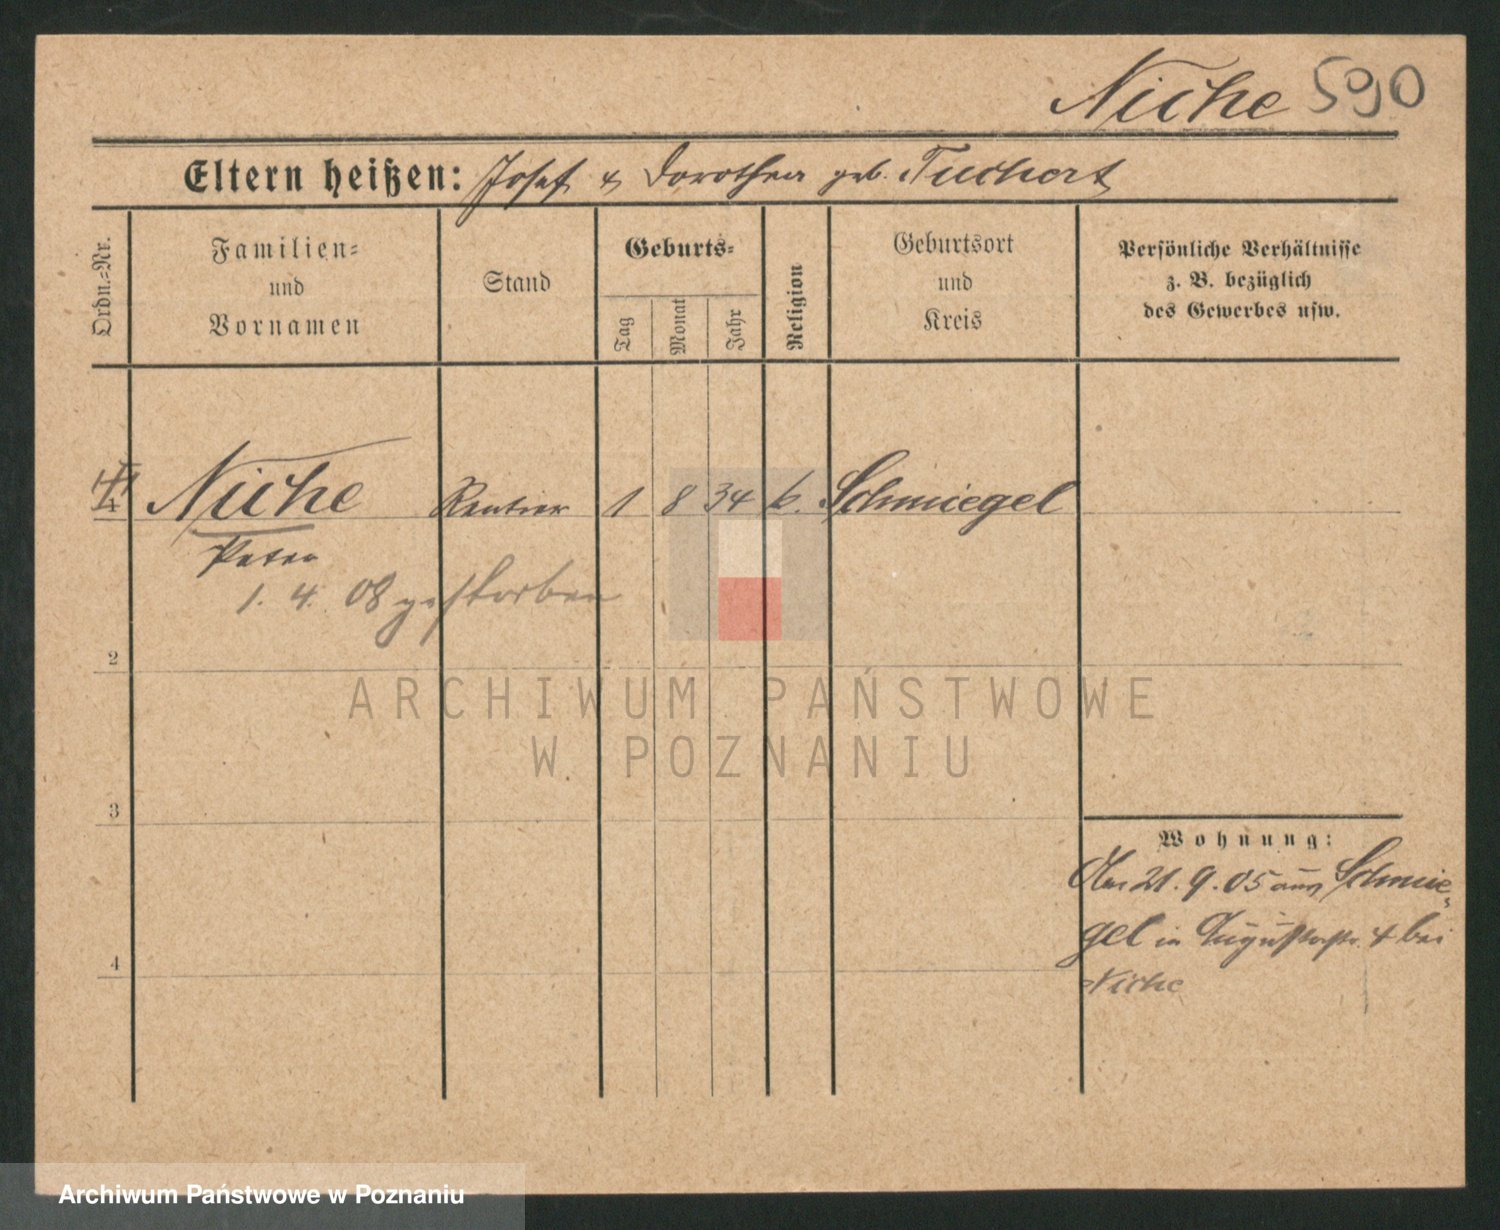 Niche 590
Eltern heißen: Josef & Dorothea geb. Tuchert
Ordn.=Nr.
Familien=
und
Vornamen
Stand
Geburts=
Tag
Monat
Jahr
Religion
Geburtsort
und
Kreis
Persönliche Verhältnisse
z. B. bezüglich
des Gewerbes usw.
Niche Rentier 1 8 34 k. Schmiegel
Peter
1. 4. 08 gestorben
2
ARCHIWUM PAŃSTWOWE
W POZNANIU
3
Wohnung:
Am 21. 9. 05 aus Schmie=
gel in Augustastr. 4 bei
Niche
4
Archiwum Państwowe w Poznaniu